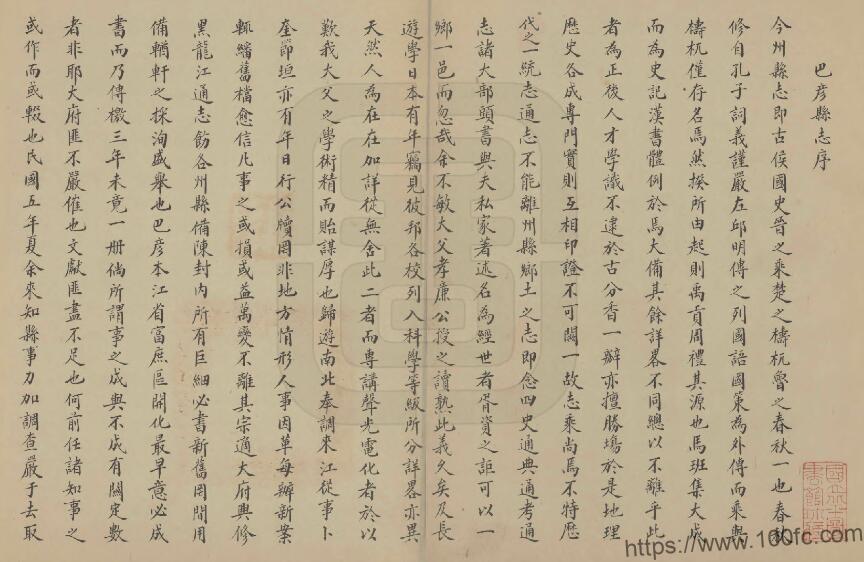 巴彦縣志序
今州縣志即古侯國史晉之乘楚之檮杌魯之春秋一也春秋
修自孔子詞義謹嚴左邱明傳之列國語國策為外傳而乘與
檮杌僅存名焉然揆所由起則禹貢周禮其源也馬班集大成
而為史記漢書體例於焉大備其餘詳畧不同總以不離乎此
者為正後人才學識不逮於古分香一瓣亦擅勝塲於是地理
歷史各成專門實則互相印證不可闕一故志乘尚焉不特歷
代之一統志通志不能離州縣鄉土之志即念四史通典通考通
志諸大部頭書與夫私家著述名為經世者胥資之詎可以一
鄉一邑而忽哉余不敏大父孝廉公授之讀熟此義久矣及長
遊學日本有年竊見彼邦各校列入科學等級所分詳畧亦異
天然人為在在加詳從無舍此二者而專講聲光電化者於以
歎我大父之學術精而貽謀厚也歸遊南北奉調來江從事卜
奎節垣亦有年日行公牘罔非地方情形人事因革每辦新案
輒繙舊檔愈信凡事之或損或益萬變不離其宗適大府興修
黑龍江通志飭各州縣備陳封內所有巨細必書新舊罔間用
備輶軒之採洵盛舉也巴彦本江省富庶區開化最早意必成
書而乃傳檄三年未竟一冊倘所謂事之成與不成有關定數
者非耶大府匪不嚴催也文獻匪盡不足也何前任諸知事之
或作而或輟也民國五年夏余來知縣事力加調查嚴于去取
https://www.100fc.com